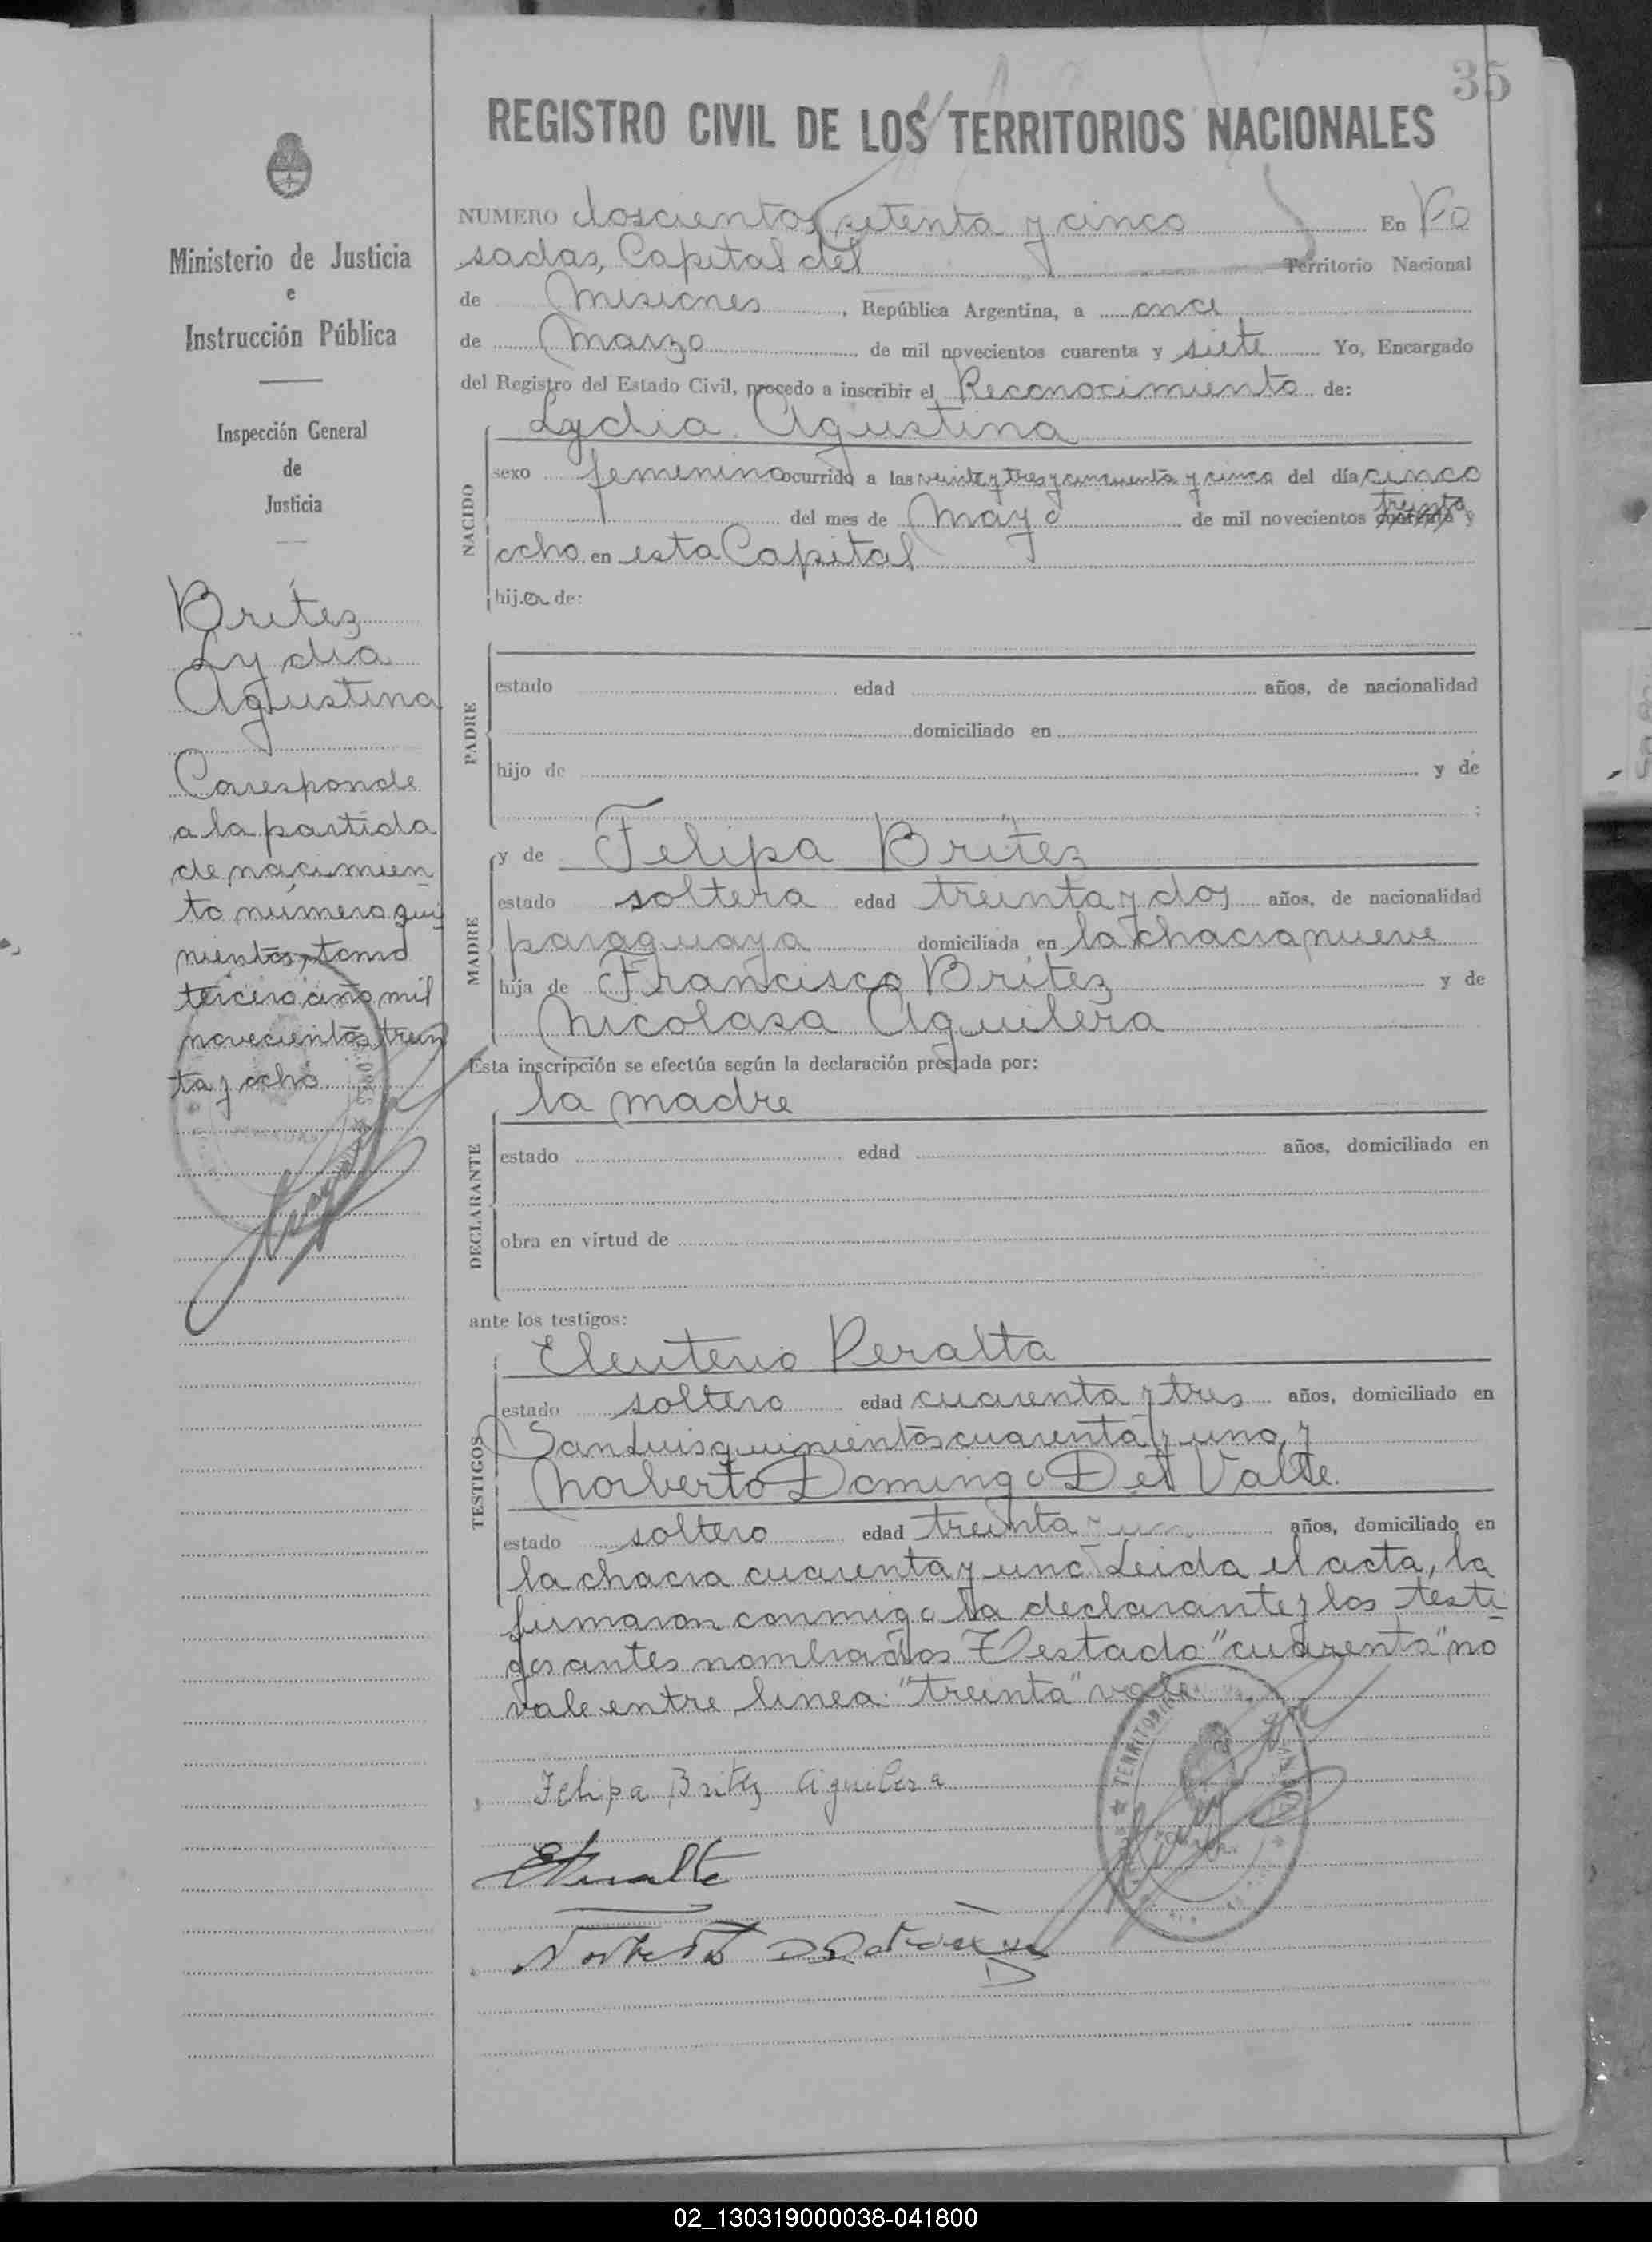 35
REGISTRO CIVIL DE LOS TERRITORIOS NACIONALES
Ministerio de Justicia
e
Instrucción Pública
Inspección General
de
Justicia
Britez
Lydia
Agustina
Corresponde
a la partida
de nacimien
to número qui
nientos, tomo
tercero año mil
novecientos trein
ta y ocho
NUMERO doscientos setenta y cinco En Po
sadas, Capital del Territorio Nacional
de Misiones, República Argentina, a once
de Marzo de mil novecientos cuarenta y siete Yo, Encargado
del Registro del Estado Civil, procedo a inscribir el Reconocimiento de:
NACIDO
Lydia Agustina
sexo femenino ocurrido a las veinte y tres y cincuenta y cinco del día cinco
treinta
del mes de Mayo de mil novecientos cuarenta y
ocho en esta Capital
hija de:
PADRE
estado edad años, de nacionalidad
domiciliado en
hijo de y de
:
MADRE
y de Felipa Britez
estado soltera edad treinta y dos años, de nacionalidad
paraguaya domiciliada en la chacra nueve
hija de Francisco Britez y de
Nicolasa Aguilera
Esta inscripción se efectúa según la declaración prestada por:
DECLARANTE
la madre
estado edad años, domiciliado en
obra en virtud de
ante los testigos:
TESTIGOS
Eleuterio Peralta
estado soltero edad cuarenta y tres años, domiciliado en
San Luis quinientos cuarenta y uno, y
Norberto Domingo Del Valle.
estado soltero edad treinta y un años, domiciliado en
la chacra cuarenta y uno. Leida el acta, la
firmaron conmigo la declarante y los testi
gos antes nombrados Testado: "cuarenta" no
vale entre linea: "treinta" vale
TERRITORIOS
POSADAS
Felipa Britez Aguilera
EPeralta
Norberto D
02_130319000038-041800